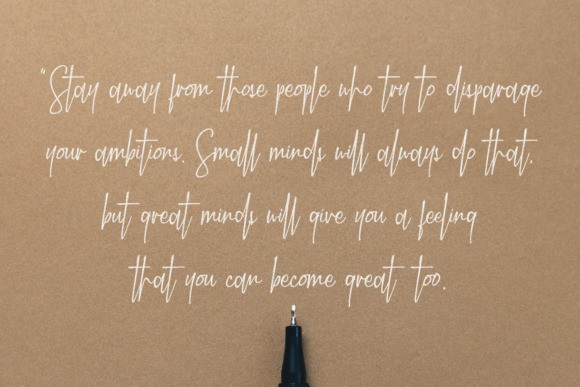 "Stay away from those people who try to disparage
your ambitions. Small minds will always do that,
but great minds will give you a feeling
that you can become great too.